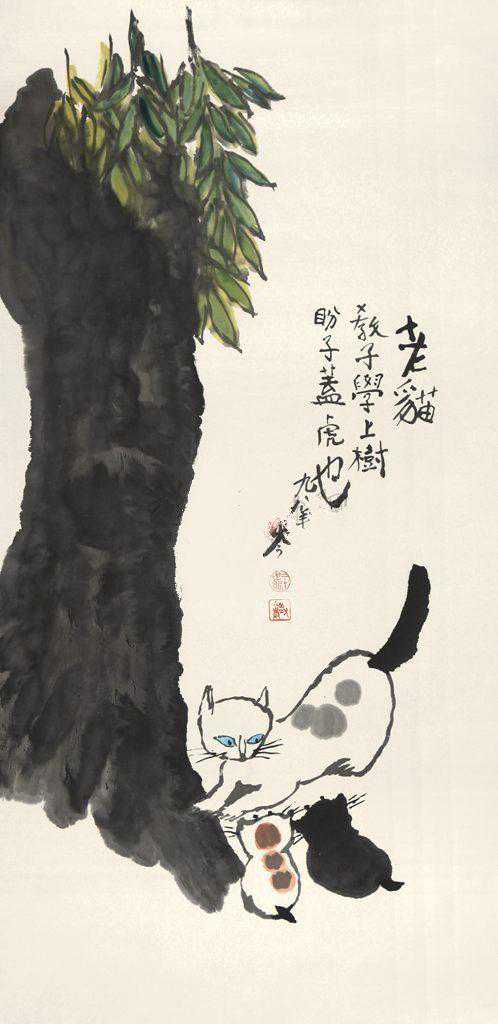 老貓
教子學上樹
盼子蓋虎也
九八年